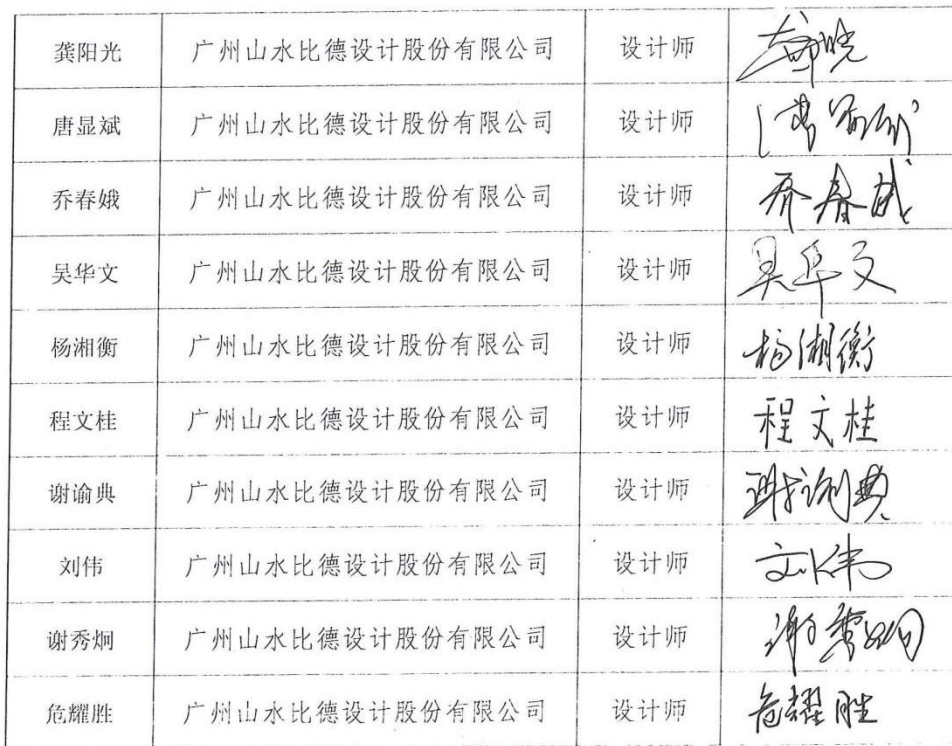 龚阳光 广州山水比德设计股份有限公司 设计师
唐显斌 广州山水比德设计股份有限公司 设计师
乔春娥 广州山水比德设计股份有限公司 设计师 乔春娥
吴华文 广州山水比德设计股份有限公司 设计师 吴华文
杨湘衡 广州山水比德设计股份有限公司 设计师 杨湘衡
程文桂 广州山水比德设计股份有限公司 设计师 程文桂
谢谕典 广州山水比德设计股份有限公司 设计师 谢谕典
刘伟 广州山水比德设计股份有限公司 设计师 刘伟
谢秀炯 广州山水比德设计股份有限公司 设计师 谢秀炯
危耀胜 广州山水比德设计股份有限公司 设计师 危耀胜